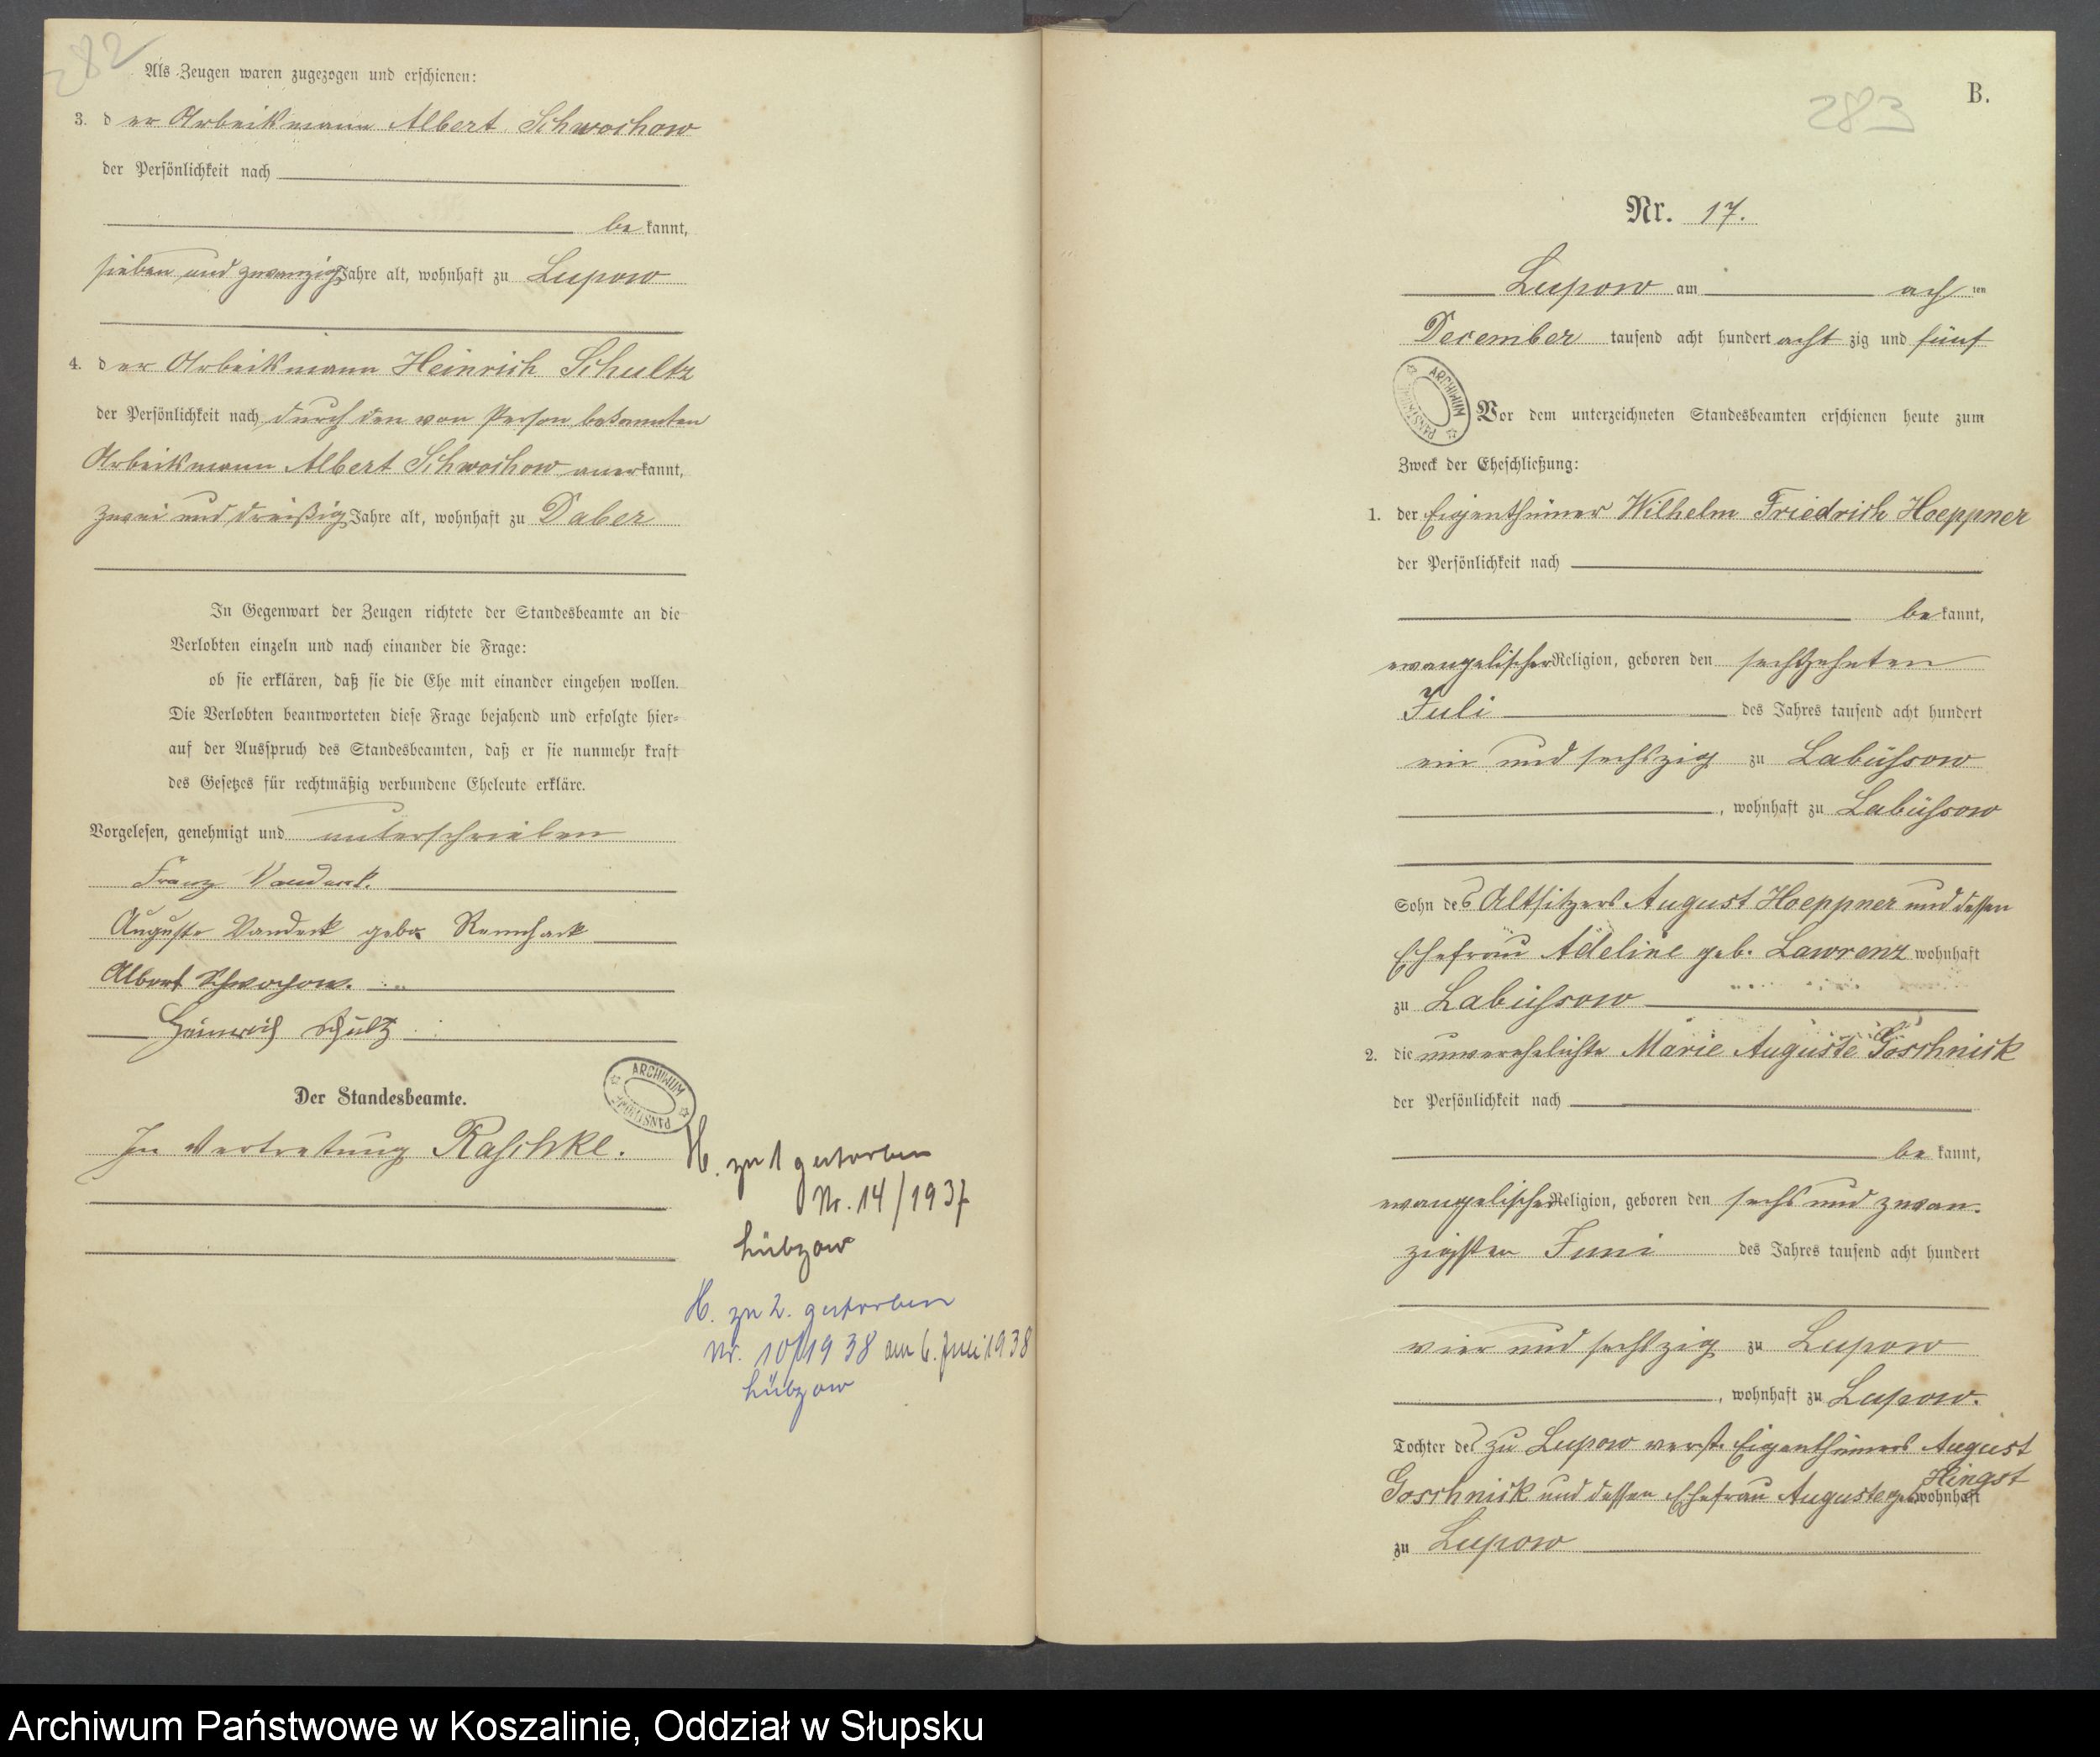 282
Als Zeugen waren zugezogen und erschienen:
3. der Arbeitsmann Albert Schwochow
der Persönlichkeit nach
be kannt,
sieben und zwanzig Jahre alt, wohnhaft zu Lupow
4. der Arbeitsmann Heinrich Schultz
der Persönlichkeit nach durch den von Person bekannten
Arbeitsmann Albert Schwochow anerkannt,
zwei und dreißig Jahre alt, wohnhaft zu Daber
In Gegenwart der Zeugen richtete der Standesbeamte an die
Verlobten einzeln und nach einander die Frage:
ob sie erklären, daß sie die Ehe mit einander eingehen wollen.
Die Verlobten beantworteten diese Frage bejahend und erfolgte hier-
auf der Ausspruch des Standesbeamten, daß er sie nunmehr kraft
des Gesetzes für rechtmäßig verbundene Eheleute erkläre.
Vorgelesen, genehmigt und unterschrieben
Franz
Auguste gebo
Albert Schwochow.
Heinrich Schultz
Der Standesbeamte.
In Vertretung Raschke.
ARCHIWUM PAŃSTWOWE
H. zu 1 gestorben
Nr. 14/1937
Lübzow
H. zu 2. gestorben
Nr. 10/1938 am 6. Juni 1938
Lübzow
283
B.
Nr. 17.
Lupow am achten
December tausend acht hundert acht zig und fünf
ARCHIWUM PAŃSTWOWE
Vor dem unterzeichneten Standesbeamten erschienen heute zum
Zweck der Eheschließung:
1. der Eigenthümer Wilhelm Friedrich Hoeppner
der Persönlichkeit nach
be kannt,
evangelischer Religion, geboren den sechszehnten
Juli des Jahres tausend acht hundert
ein und sechszig zu Labüssow
, wohnhaft zu Labüssow
Sohn des Altsitzers August Hoeppner und dessen
Ehefrau Adeline geb. Lawrenz wohnhaft
zu Labüssow
2. die unverehelichte Marie Auguste Goschnick
der Persönlichkeit nach
be kannt,
evangelischer Religion, geboren den sechs und zwan-
zigsten Juni des Jahres tausend acht hundert
vier und sechszig zu Lupow
, wohnhaft zu Lupow.
Tochter des zu Lupow verst. Eigenthümers August
Goschnick und dessen Ehefrau Auguste geb. Hingst wohnhaft
zu Lupow
Archiwum Państwowe w Koszalinie, Oddział w Słupsku